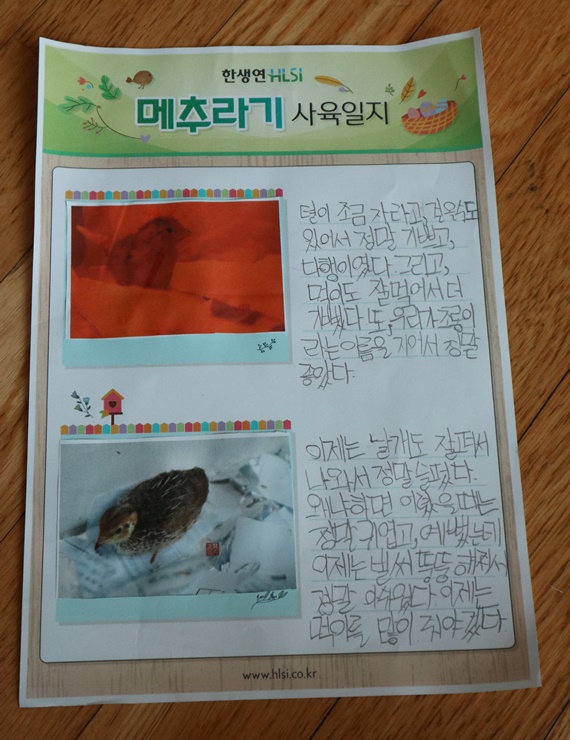 한생연 HLSI
메추라기 사육일지
털이 조금 자라고, 걸을수도
있어서 정말 기뻤고,
다행이였다. 그리고,
먹이도 잘먹어서 더
기뻤다. 또, 우리가 초롱이
라는 이름을 지어서 정말
좋았다.
이제는 날개도 잘펴서
나와서 정말 슬펐다.
왜냐하면 어렸을때는
정말 귀엽고, 예뻤는데
이제는 벌써 뚱뚱해져서
정말 아쉬웠다. 이제는
먹이를 많이 줘야겠다.
www.hlsi.co.kr